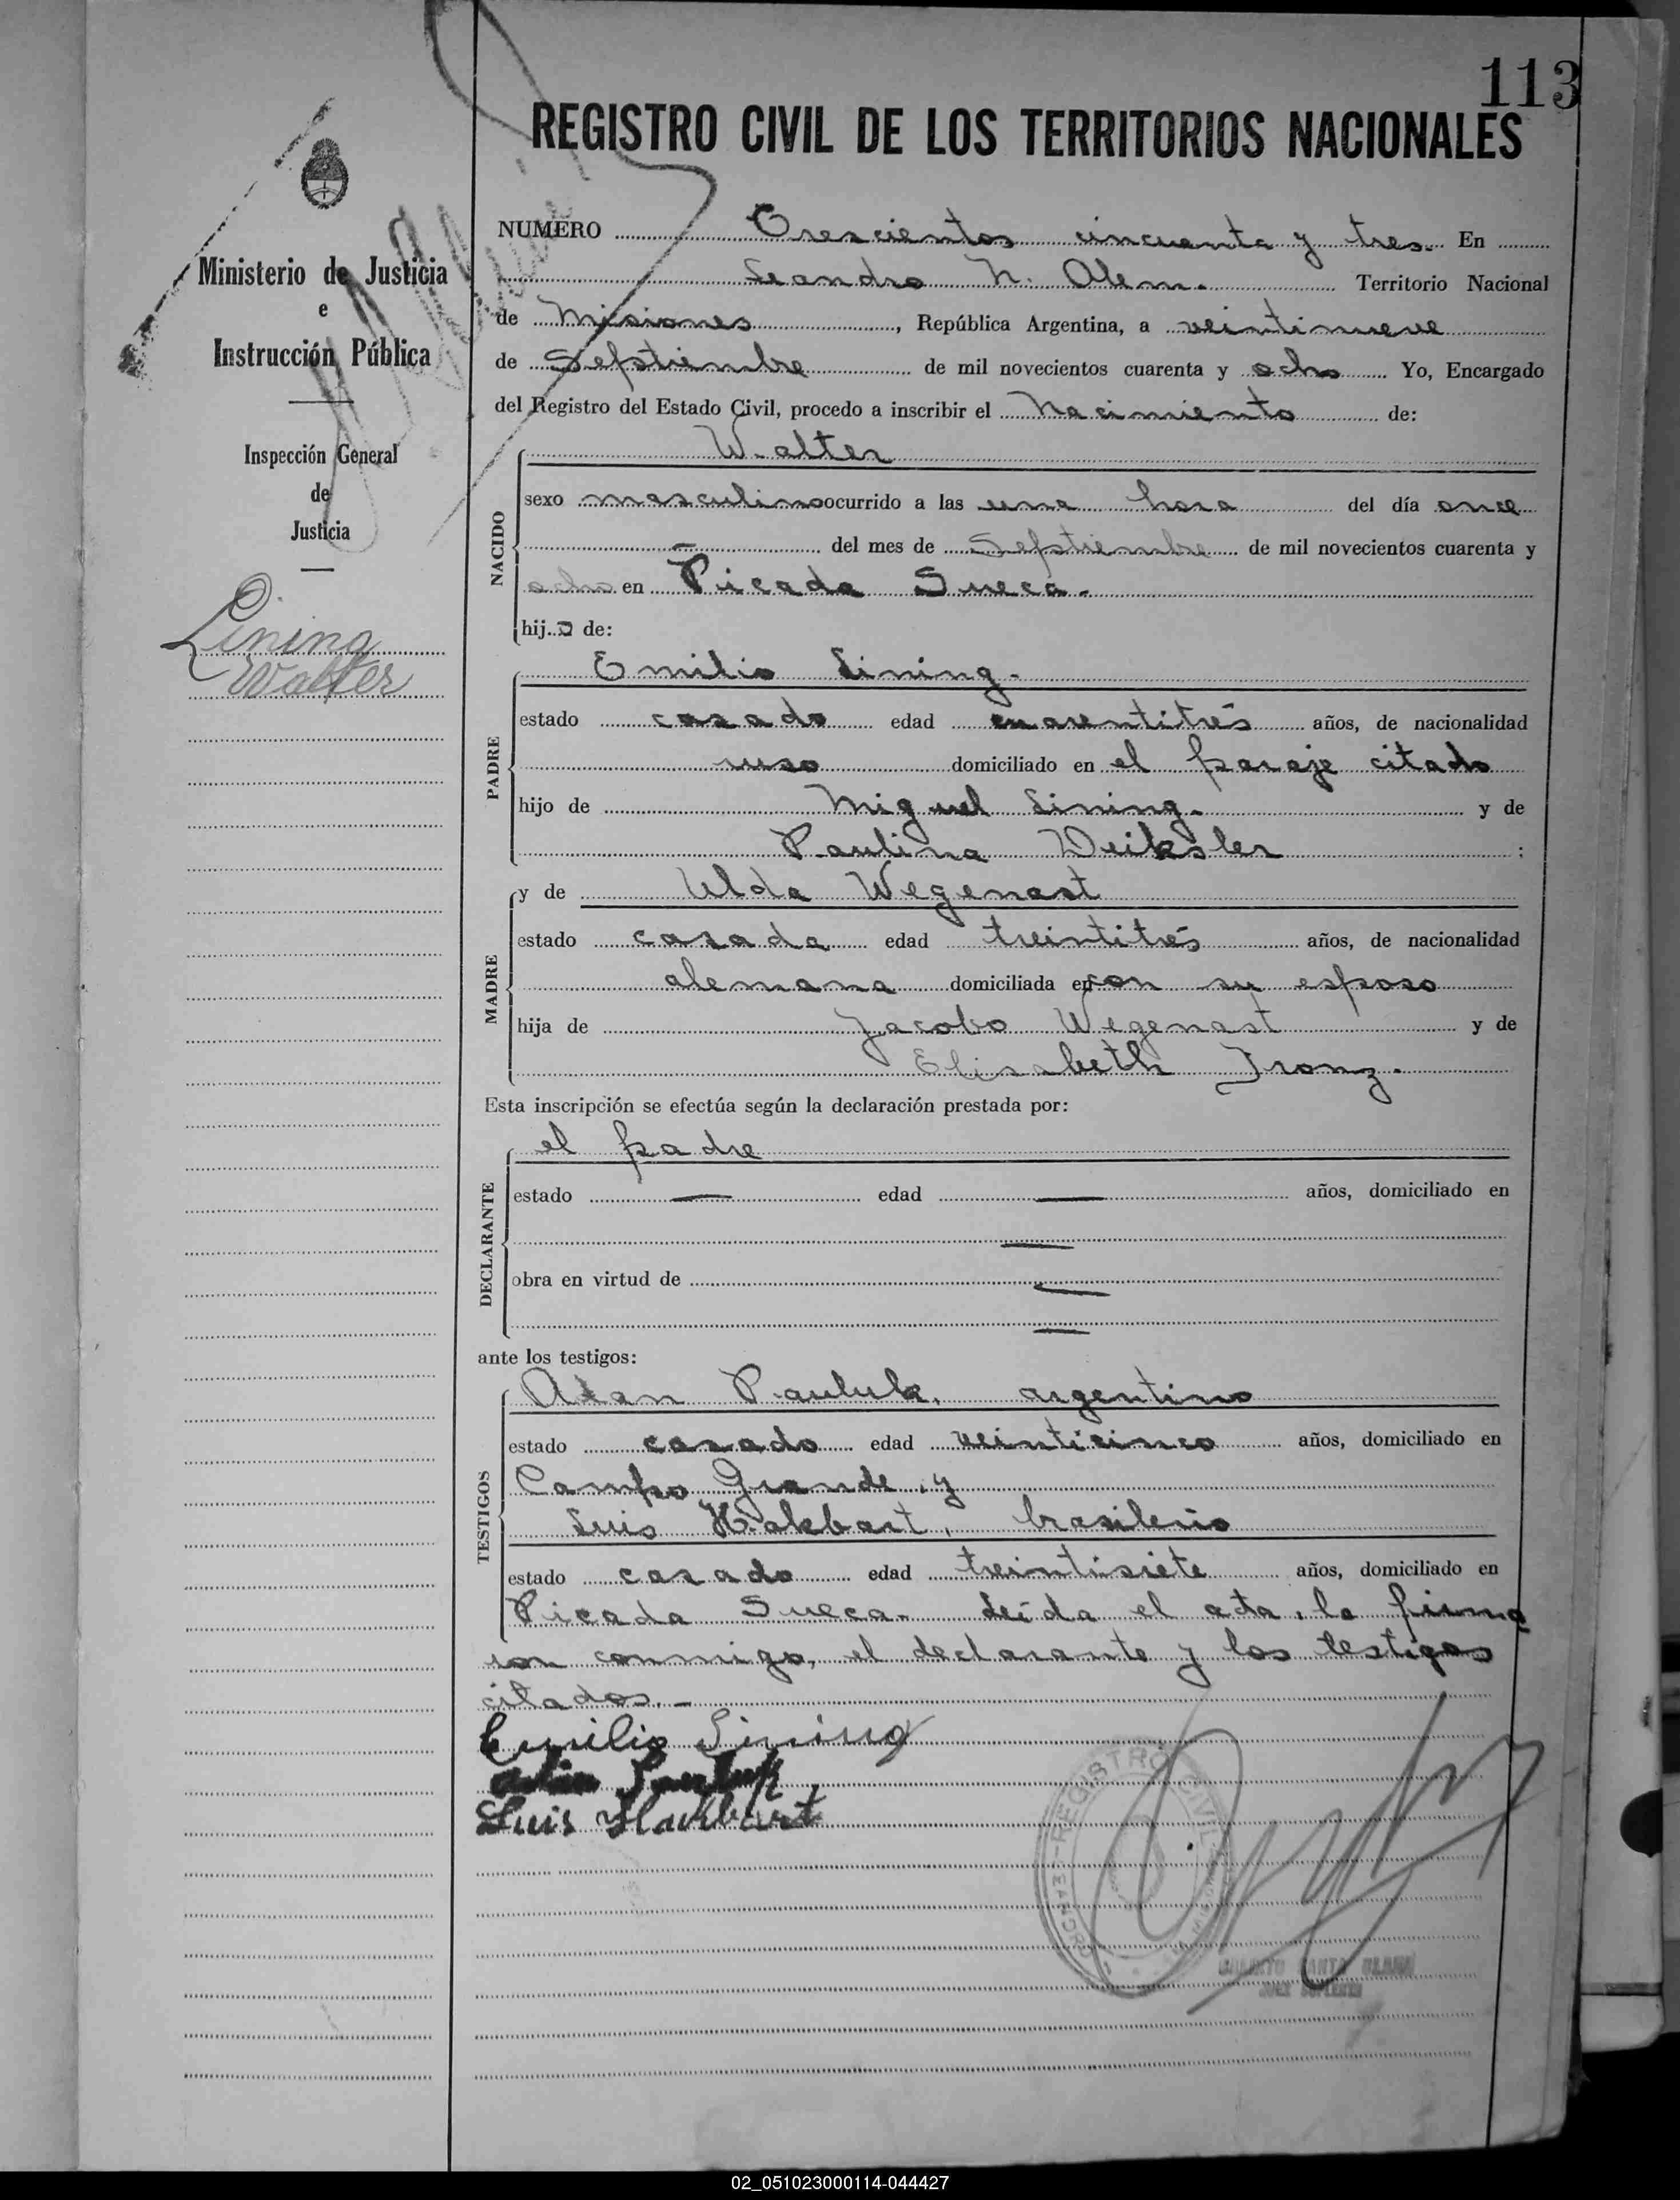 113
REGISTRO CIVIL DE LOS TERRITORIOS NACIONALES
Ministerio de Justicia
e
Instrucción Pública
Inspección General
de
Justicia
Lining
Walter
NUMERO Trescientos cincuenta y tres. En
Leandro N. Alem. Territorio Nacional
de Misiones, República Argentina, a veintinueve
de Septiembre de mil novecientos cuarenta y ocho Yo, Encargado
del Registro del Estado Civil, procedo a inscribir el Nacimiento de:
NACIDO
Walter
sexo masculino ocurrido a las una hora del día once
— del mes de Septiembre de mil novecientos cuarenta y
ocho en Picada Sueca.
hijo de:
PADRE
Emilio Lining.
estado casado edad cuarentitrés años, de nacionalidad
ruso domiciliado en el paraje citado
hijo de Miguel Lining. y de
Paulina Weiksler ;
MADRE
y de Ulda Wegenast
estado casada edad treintitrés años, de nacionalidad
alemana domiciliada en con su esposo
hija de Jacobo Wegenast y de
Elisabeth Tronz.
Esta inscripción se efectúa según la declaración prestada por:
DECLARANTE
el padre
estado — edad — años, domiciliado en
—
obra en virtud de —
—
ante los testigos:
TESTIGOS
Adan Pauluk, argentino
estado casado edad veinticinco años, domiciliado en
Campo Grande, y
Luis Hakbart, brasileño
estado casado edad treintisiete años, domiciliado en
Picada Sueca. Leída el acta, la firma
ron conmigo, el declarante y los testigos
citados.-
Emilio Lining
Adán Pauluk
Luis Hackbart
REGISTRO CIVIL
02_051023000114-044427